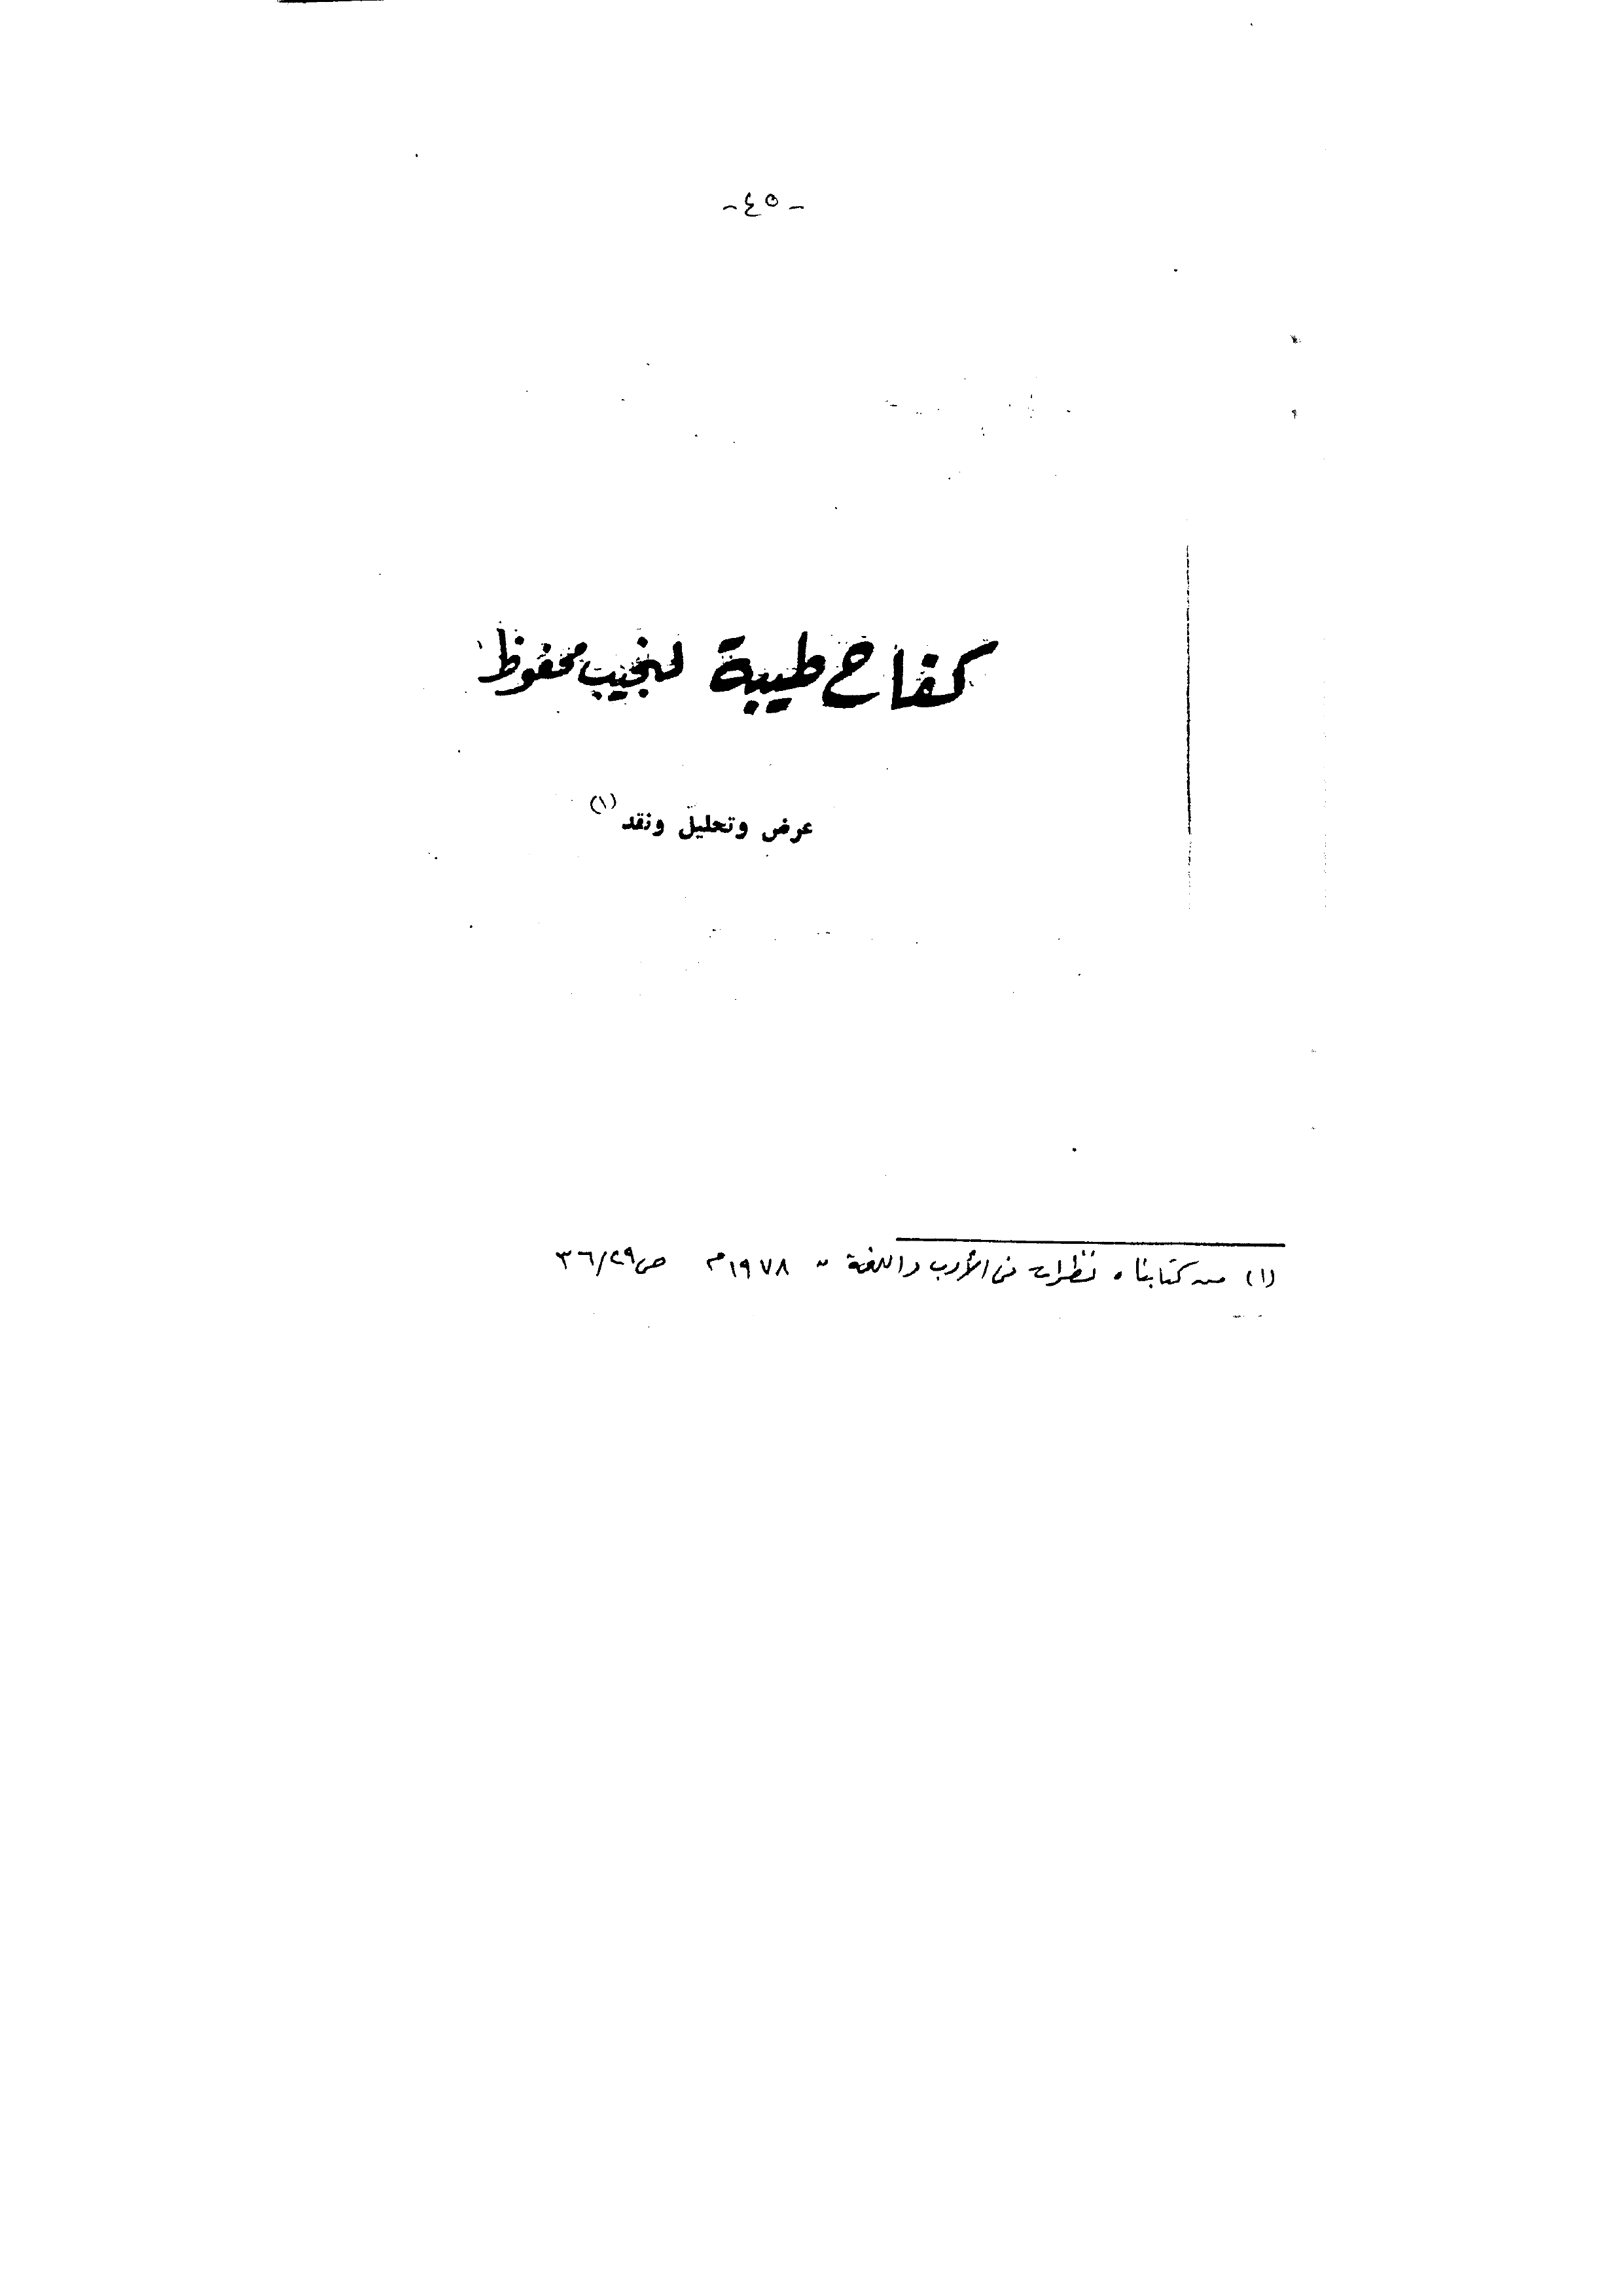 -٤٥-
كفاح طيبة لنجيب محفوظ
عرض وتحليل ونقد (١)
(١) من كتابنا " نظرات في الأدب واللغة " ١٩٧٨م ص ٢٩/٣٦